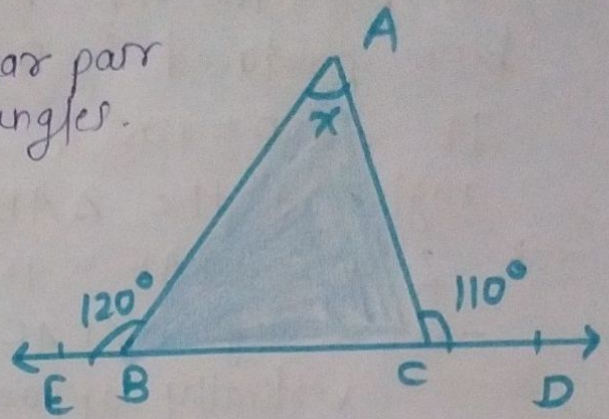 ar pair
angles.
A
x
120°
110°
E B C D